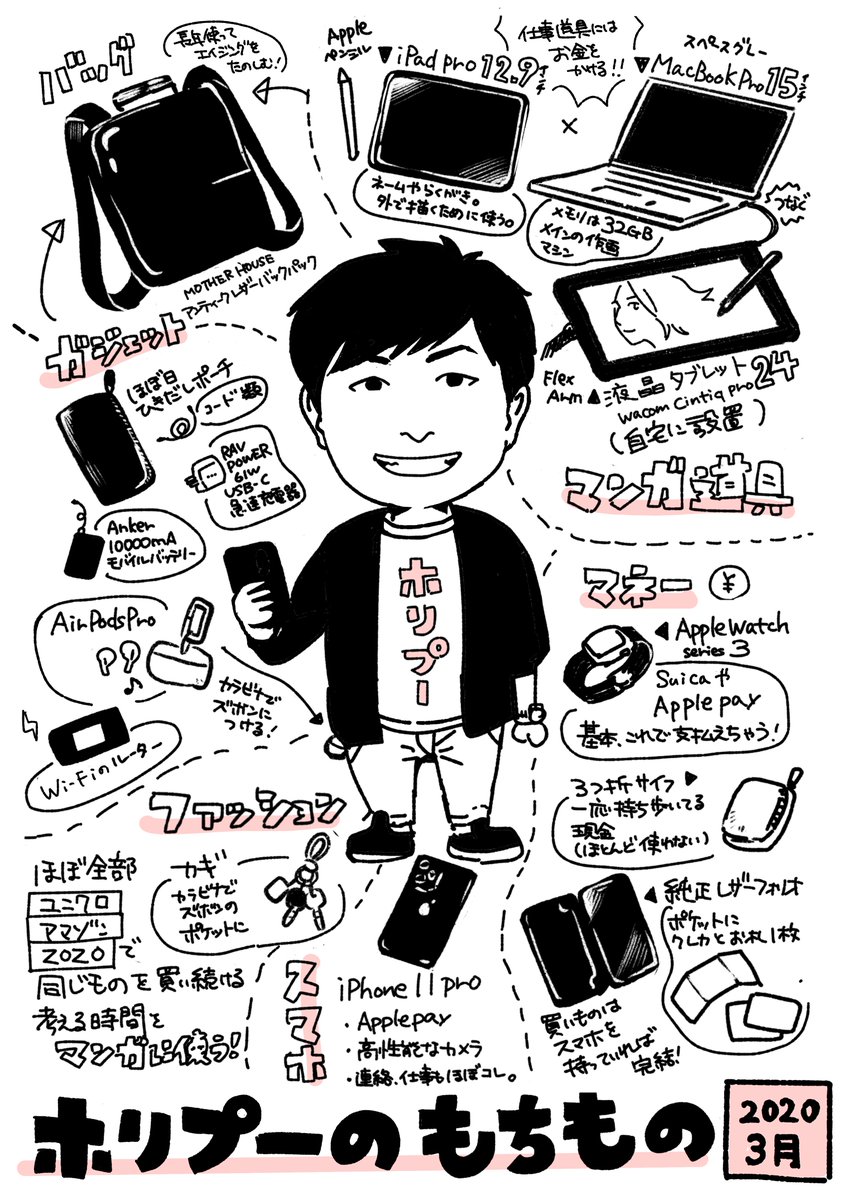 バッグ
長年使って
エイジングを
たのしむ!
MOTHER HOUSE
アンティークレザーバックパック
Apple
ペンシル
▼iPad pro 12.9インチ
仕事道具には
お金を
かける!!
スペースグレー
▼MacBook Pro 15インチ
×
ネームやらくがき。
外で描くために使う。
メモリは32GB
メインの作画
マシン
つなぐ
Flex
Arm
▲液晶タブレット
wacom Cintiq pro 24
(自宅に設置)
マンガ道具
ガジェット
ほぼ日
ひきだしポーチ
コード類
RAV
POWER
61W
USB-C
急速充電器
Anker
10000mA
モバイルバッテリー
AirPodsPro
カラビナで
ズボンに
つける!
Wi-Fiのルーター
ホリプー
マネー ¥
◀AppleWatch
series 3
Suicaや
Apple pay
基本、これで支払えちゃう!
3つ折サイフ▶
一応持ち歩いてる
現金
(ほとんど使わない)
◀純正レザーフォリオ
ポケットに
クレカとお札1枚
買いものは
スマホを
持っていれば
完結!
ファッション
ほぼ全部
ユニクロ
アマゾン
ZOZOで
同じものを買い続ける
考える時間を
マンガに使う!
カギ
カラビナで
ズボンの
ポケットに
スマホ
iPhone 11 pro
・Applepay
・高性能なカメラ
・連絡、仕事もほぼコレ。
ホリプーのもちもの
2020
3月